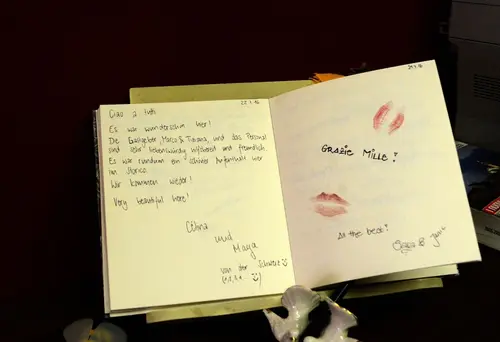 Ciao a tutti
Es war wunderschön hier!
Die Gastgeber, Marco & Tiziana, und das Personal
sind sehr liebenswürdig hilfsbereit und freundlich
Es war rundum ein schöner Aufenthalt hier
im Storico.
Wir kommen wieder!
Very beautiful here!
Célina
und
Maya
von der Schweiz
GRAZIE MILLE!
the best!